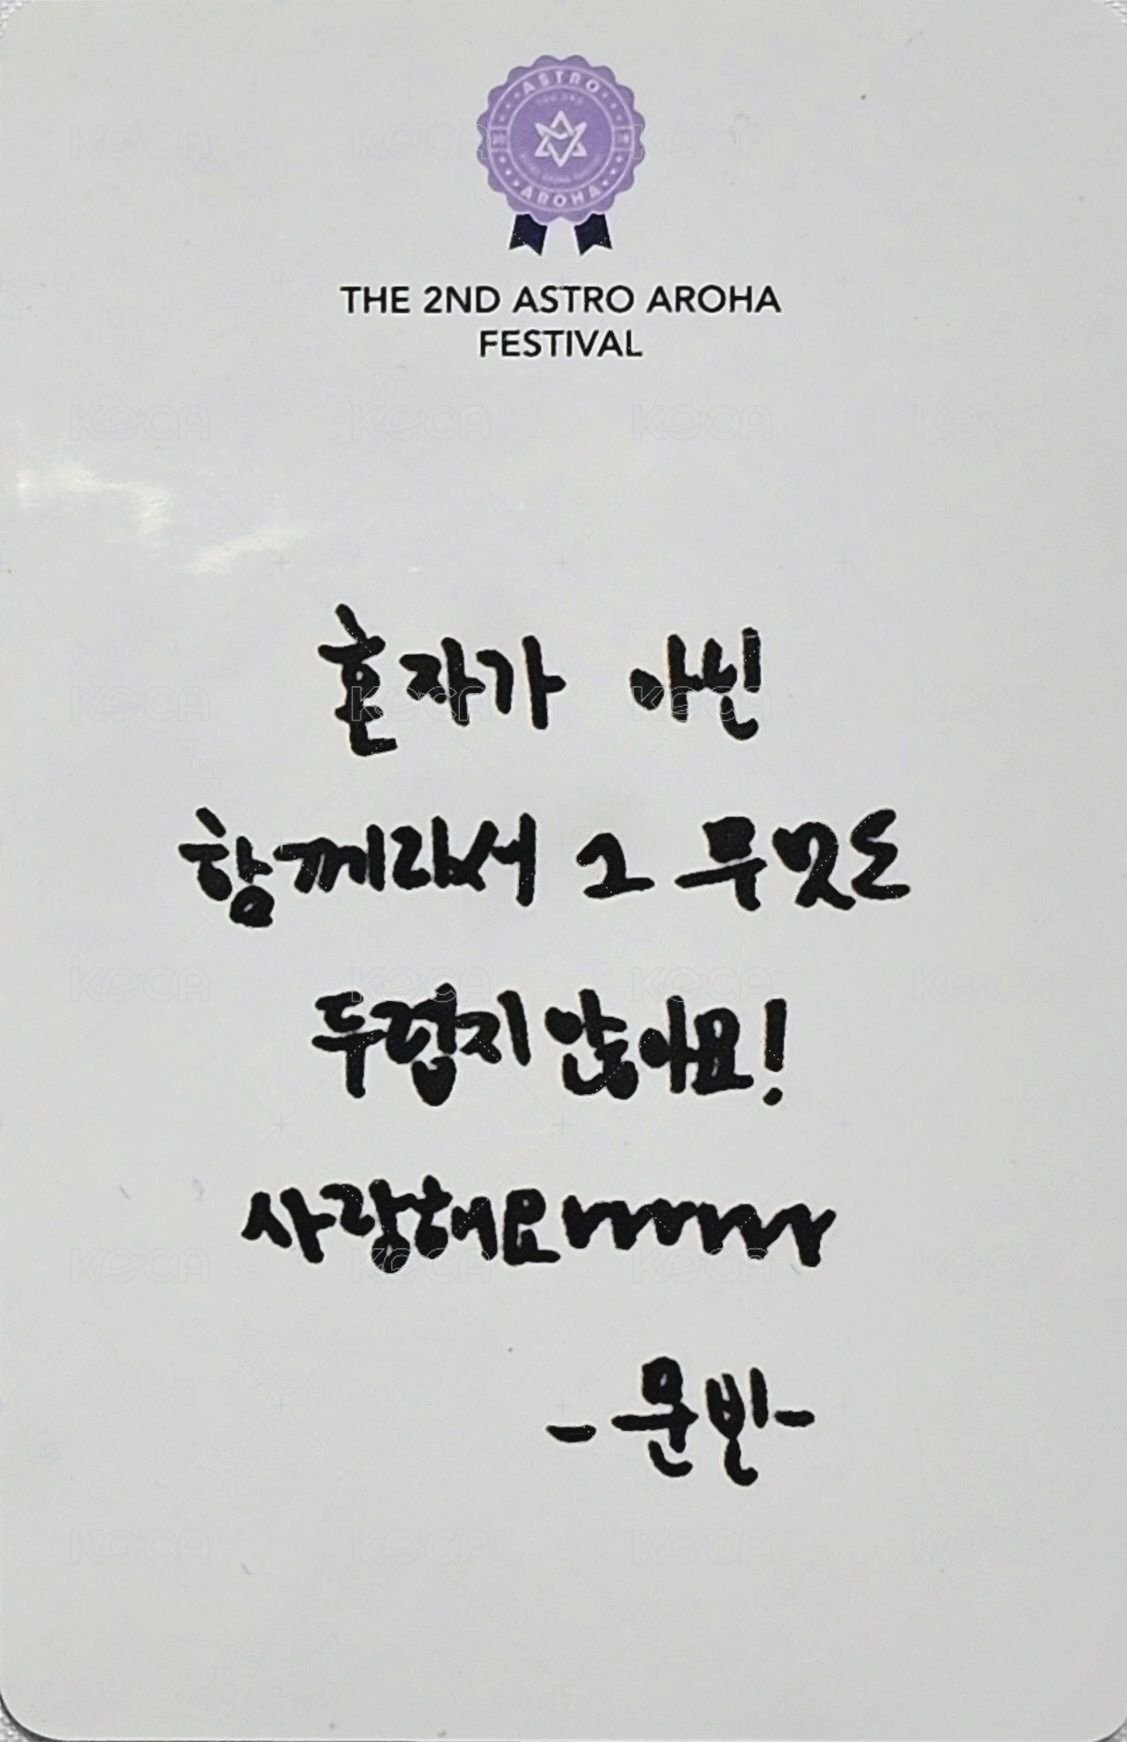 ASTRO
AROHA
THE 2ND ASTRO AROHA
FESTIVAL
혼자가 아닌
함께라서 그 무엇도
두렵지 않아요!
사랑해요
-문빈-
KOCA